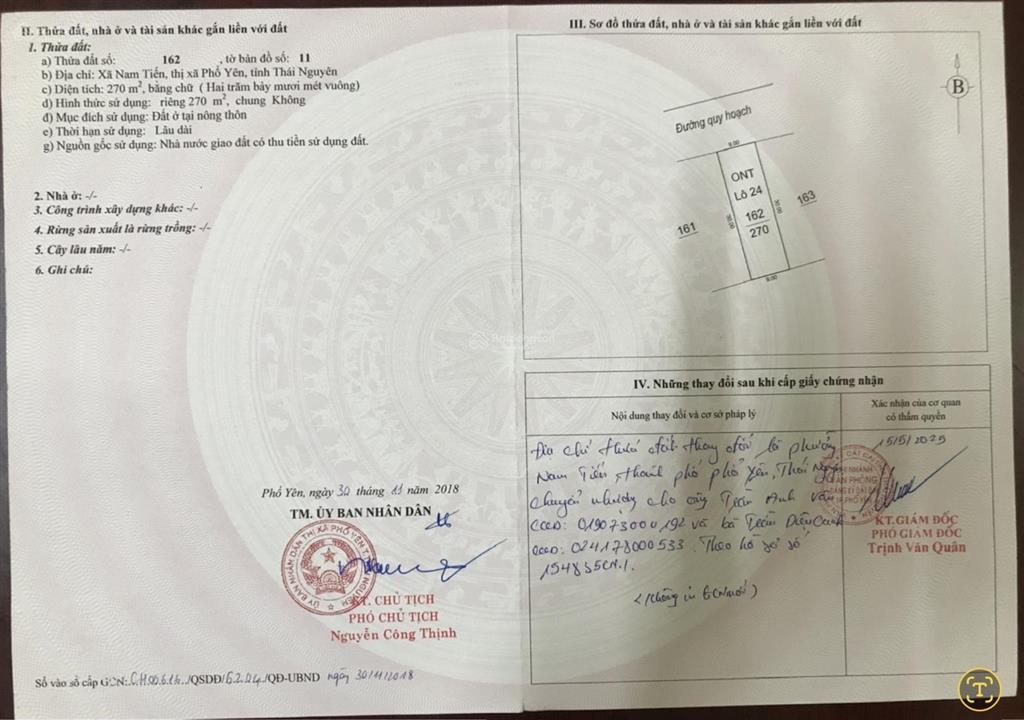 II. Thửa đất, nhà ở và tài sản khác gắn liền với đất
1. Thửa đất:
a) Thửa đất số: 162 , tờ bản đồ số: 11
b) Địa chỉ: Xã Nam Tiến, thị xã Phổ Yên, tỉnh Thái Nguyên
c) Diện tích: 270 m², bằng chữ ( Hai trăm bảy mươi mét vuông)
d) Hình thức sử dụng: riêng 270 m², chung Không
đ) Mục đích sử dụng: Đất ở tại nông thôn
e) Thời hạn sử dụng: Lâu dài
g) Nguồn gốc sử dụng: Nhà nước giao đất có thu tiền sử dụng đất.
2. Nhà ở: -/-
3. Công trình xây dựng khác: -/-
4. Rừng sản xuất là rừng trồng: -/-
5. Cây lâu năm: -/-
6. Ghi chú:
Phổ Yên, ngày 30 tháng 11 năm 2018
TM. ỦY BAN NHÂN DÂN
KT. CHỦ TỊCH
PHÓ CHỦ TỊCH
Nguyễn Công Thịnh
Số vào sổ cấp GCN: /QSDĐ/ /QĐ-UBND ngày 30/11/2018
III. Sơ đồ thửa đất, nhà ở và tài sản khác gắn liền với đất
B
Đường quy hoạch
9.00
ONT
Lô 24
162
270
30.00
30.00
161
163
9.00
IV. Những thay đổi sau khi cấp giấy chứng nhận
Nội dung thay đổi và cơ sở pháp lý
Xác nhận của cơ quan
có thẩm quyền
Địa chỉ thửa đất thay đổi là phường
Nam Tiến, thành phố Phổ Yên, Thái Nguyên
Chuyển nhượng cho ông Trần Anh Văn
CCCD: 019073000192 và bà Trần Diệu
CCCD: 024178000533. Theo hồ sơ số
(Không in GCN mới)
15/5/2025
KT.GIÁM ĐỐC
PHÓ GIÁM ĐỐC
Trịnh Văn Quân